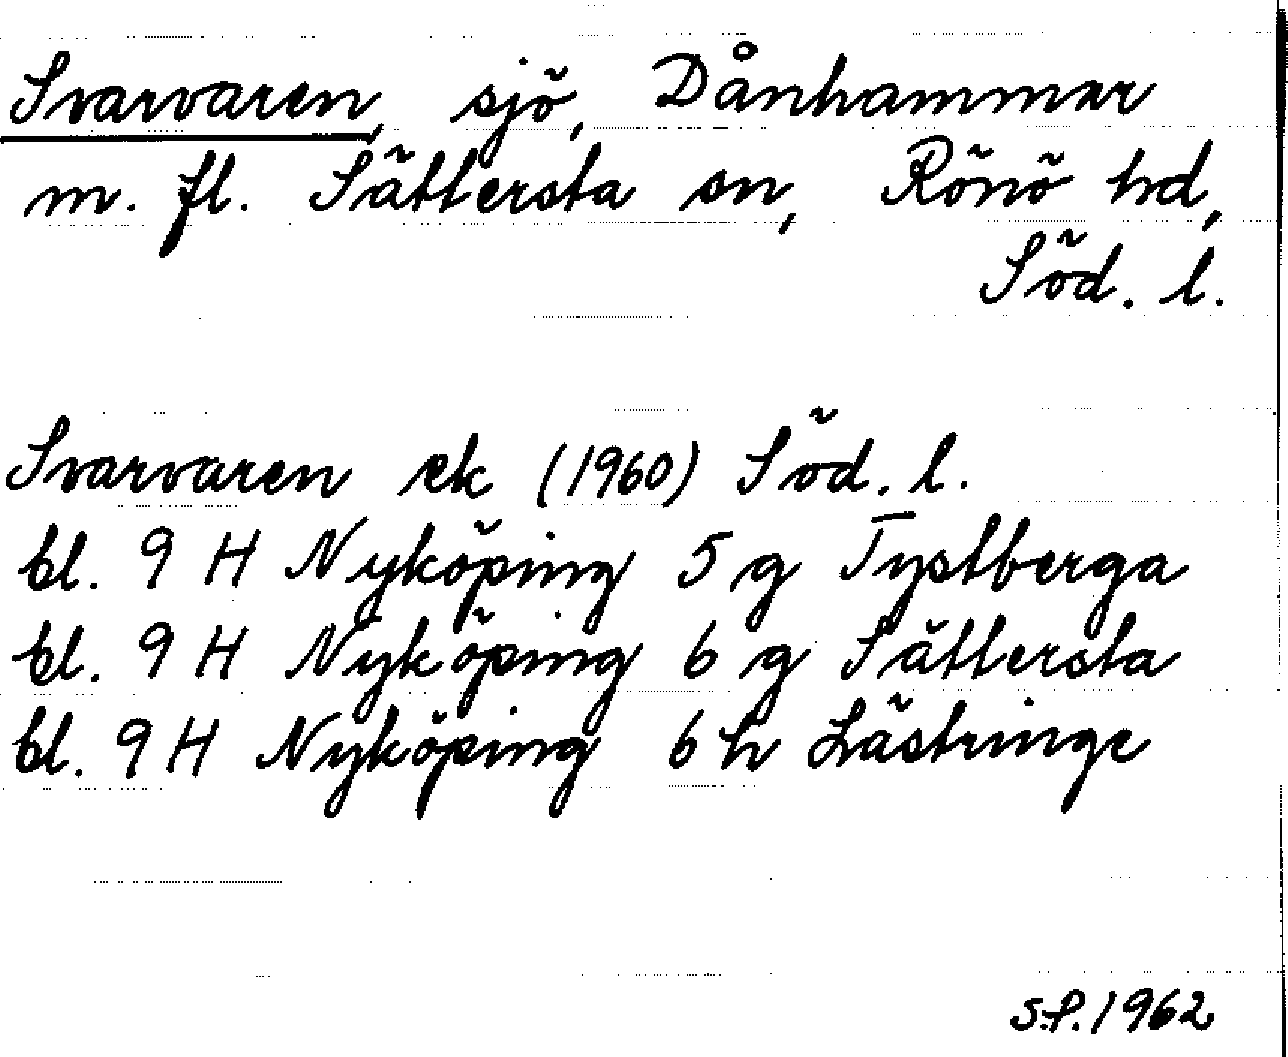 Svarvaren, sjö, Dånhammar
m. fl. Sättersta sn, Rönö hd,
Söd. l.
Svarvaren ek (1960) Söd. l.
bl. 9 H Nyköping 5 g Tystberga
bl. 9 H Nyköping 6 g Sättersta
bl. 9 H Nyköping 6 h Lästringe
S.P. 1962